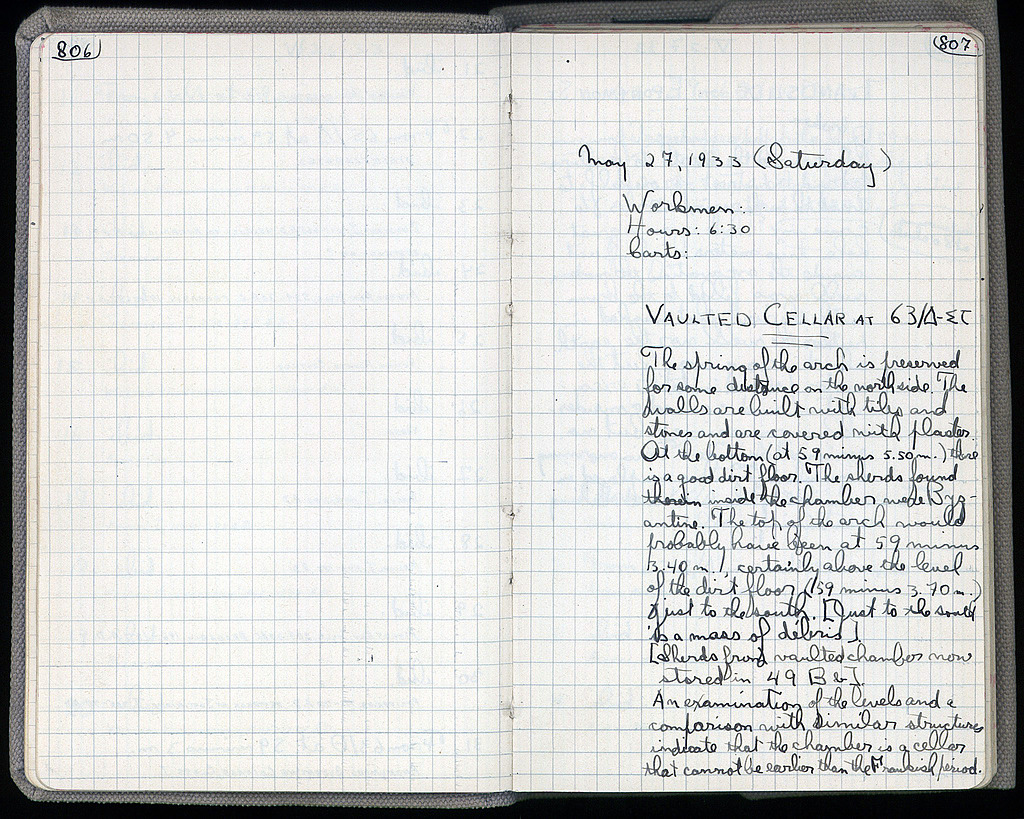 806
807
May 27, 1933 (Saturday)
Workmen:
Hours: 6:30
Carts:
VAULTED CELLAR AT 63/Δ-ΣΤ
The spring of the arch is preserved
for some distance on the north side. The
walls are built with tiles and
stones and are covered with plaster.
At the bottom (at 59 minus 5.50 m.) there
is a good dirt floor. The sherds found
therein inside the chamber were Byz-
antine. The top of the arch would
probably have been at 59 minus
3.40 m., certainly above the level
of the dirt floor (59 minus 3.70 m.)
just to the south. [Just to the south
is a mass of débris].
[Sherds from vaulted chamber now
stored in 49 B
An examination of the levels and a
comparison with similar structures
indicate that the chamber is a cellar
that cannot be earlier than the Frankish period.